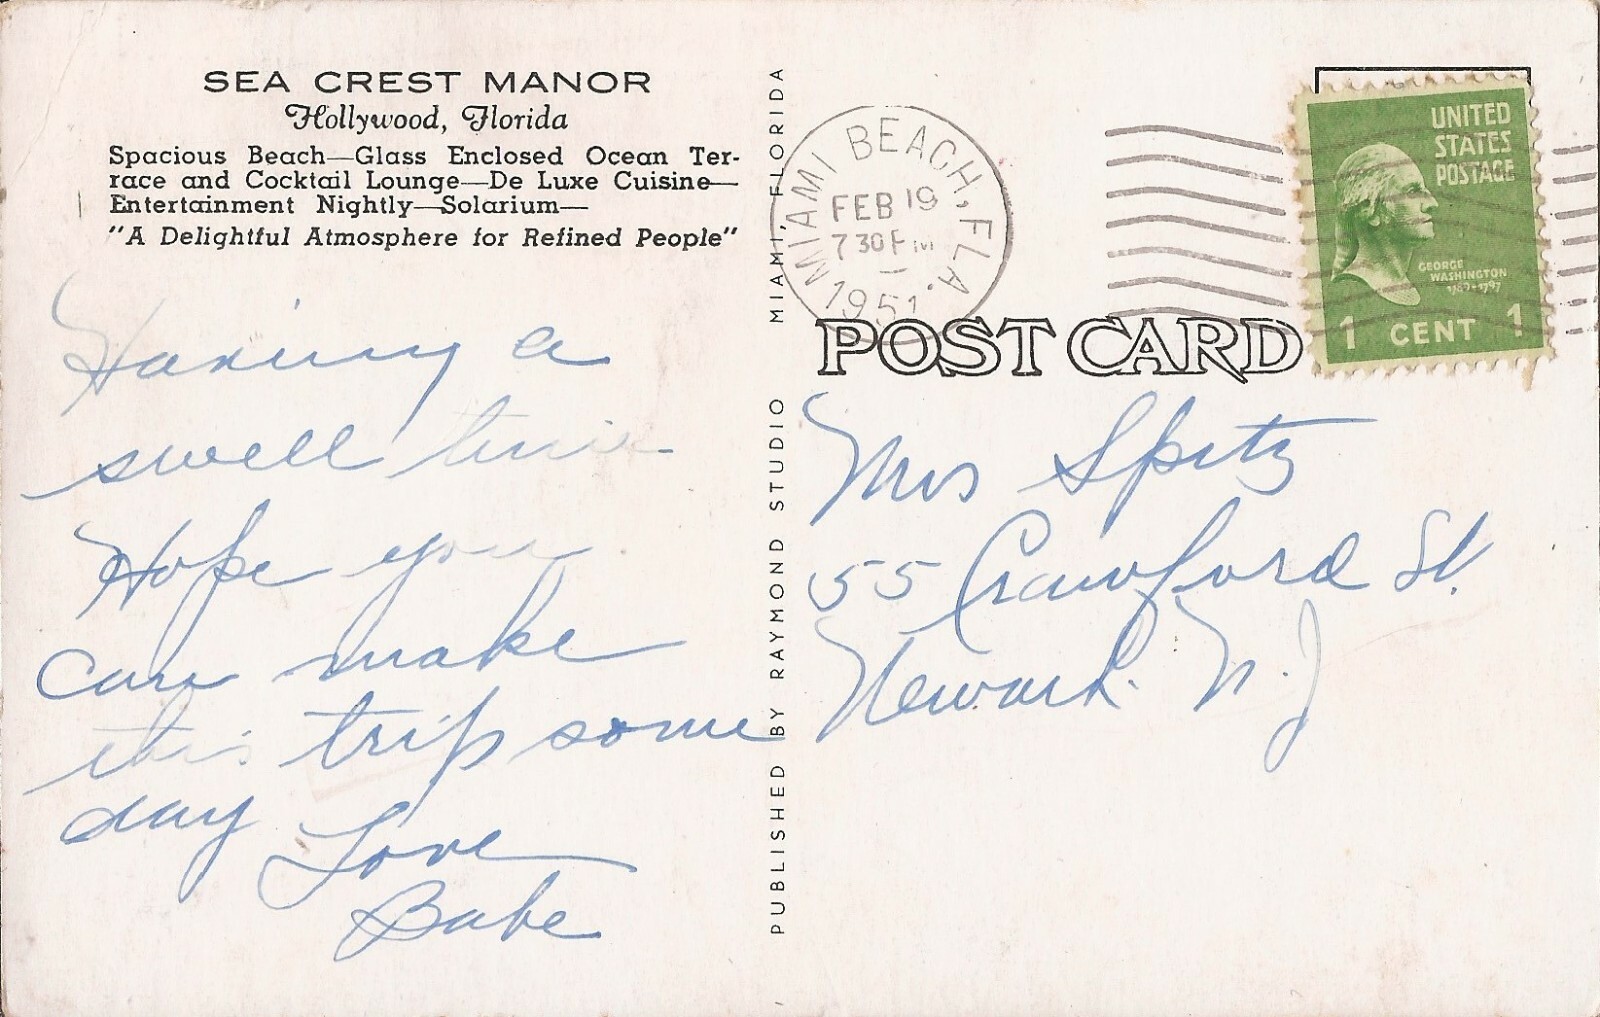 SEA CREST MANOR
Hollywood, Florida
Spacious Beach—Glass Enclosed Ocean Ter-
race and Cocktail Lounge—De Luxe Cuisine—
Entertainment Nightly—Solarium—
"A Delightful Atmosphere for Refined People"
Having a
swell time
Hope you
can make
this trip some
day
Love
Babe
PUBLISHED BY RAYMOND STUDIO MIAMI, FLORIDA
MIAMI BEACH, FLA.
FEB 19
7 30 PM
1951
UNITED
STATES
POSTAGE
GEORGE
WASHINGTON
1789-1797
1 CENT 1
POST CARD
Mrs Spitz
55 Crawford St.
Newark. N.J